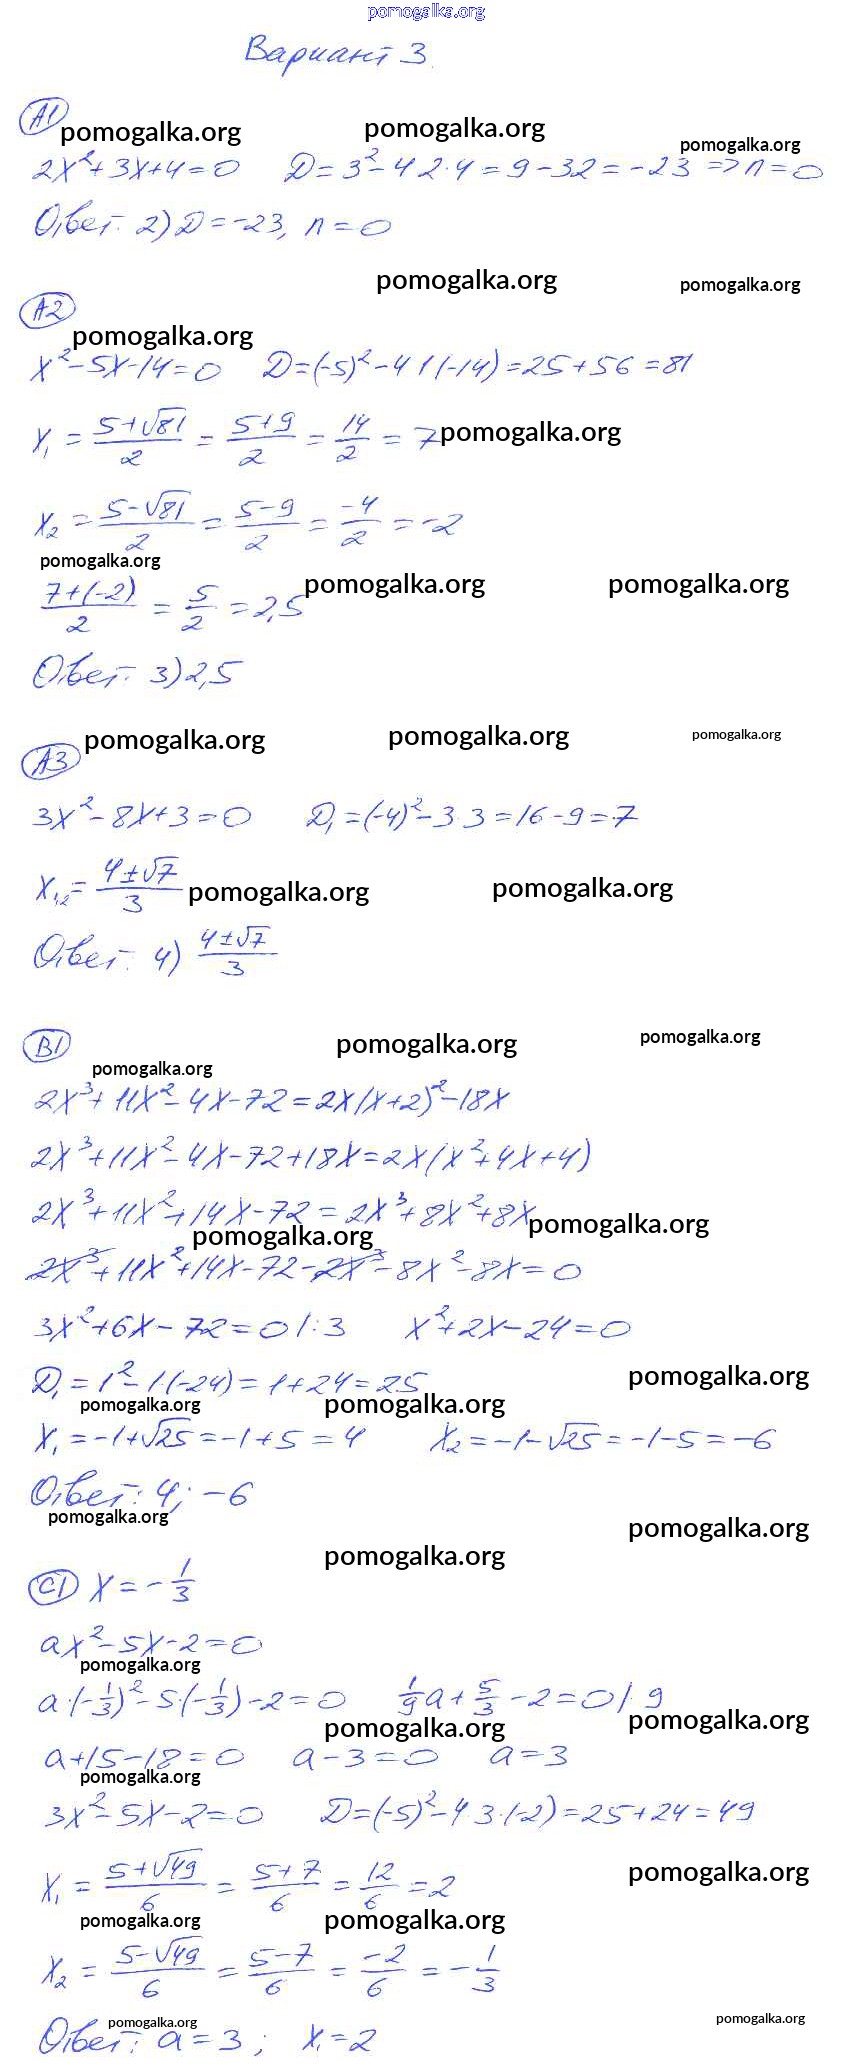 pomogalka.org
Вариант 3.
А1
pomogalka.org pomogalka.org pomogalka.org
2x²+3x+4=0 D=3²-4·2·4=9-32=-23 => n=0
Ответ: 2) D=-23, n=0
pomogalka.org pomogalka.org
А2
pomogalka.org
x²-5x-14=0 D=(-5)²-4·1·(-14)=25+56=81
x₁ = (5+√81)/2 = (5+9)/2 = 14/2 = 7 pomogalka.org
x₂ = (5-√81)/2 = (5-9)/2 = -4/2 = -2
pomogalka.org
(7+(-2))/2 = 5/2 = 2,5 pomogalka.org pomogalka.org
Ответ: 3) 2,5
А3 pomogalka.org pomogalka.org pomogalka.org
3x²-8x+3=0 D₁=(-4)²-3·3=16-9=7
x₁,₂ = (4±√7)/3 pomogalka.org pomogalka.org
Ответ: 4) (4±√7)/3
В1 pomogalka.org pomogalka.org
pomogalka.org
2x³+11x²-4x-72=2x(x+2)²-18x
2x³+11x²-4x-72+18x=2x(x²+4x+4)
2x³+11x²+14x-72=2x³+8x²+8x pomogalka.org
pomogalka.org
2x³+11x²+14x-72-2x³-8x²-8x=0
3x²+6x-72=0 |:3 x²+2x-24=0
D₁=1²-1·(-24)=1+24=25 pomogalka.org
pomogalka.org pomogalka.org
x₁=-1+√25=-1+5=4 x₂=-1-√25=-1-5=-6
Ответ: 4; -6
pomogalka.org pomogalka.org
pomogalka.org
С1 x=-1/3
ax²-5x-2=0
pomogalka.org
a·(-1/3)²-5·(-1/3)-2=0 1/9a+5/3-2=0 |·9
pomogalka.org pomogalka.org
a+15-18=0 a-3=0 a=3
pomogalka.org
3x²-5x-2=0 D=(-5)²-4·3·(-2)=25+24=49
x₁ = (5+√49)/6 = (5+7)/6 = 12/6 = 2 pomogalka.org
pomogalka.org pomogalka.org
x₂ = (5-√49)/6 = (5-7)/6 = -2/6 = -1/3
pomogalka.org pomogalka.org
Ответ: a=3; x₁=2